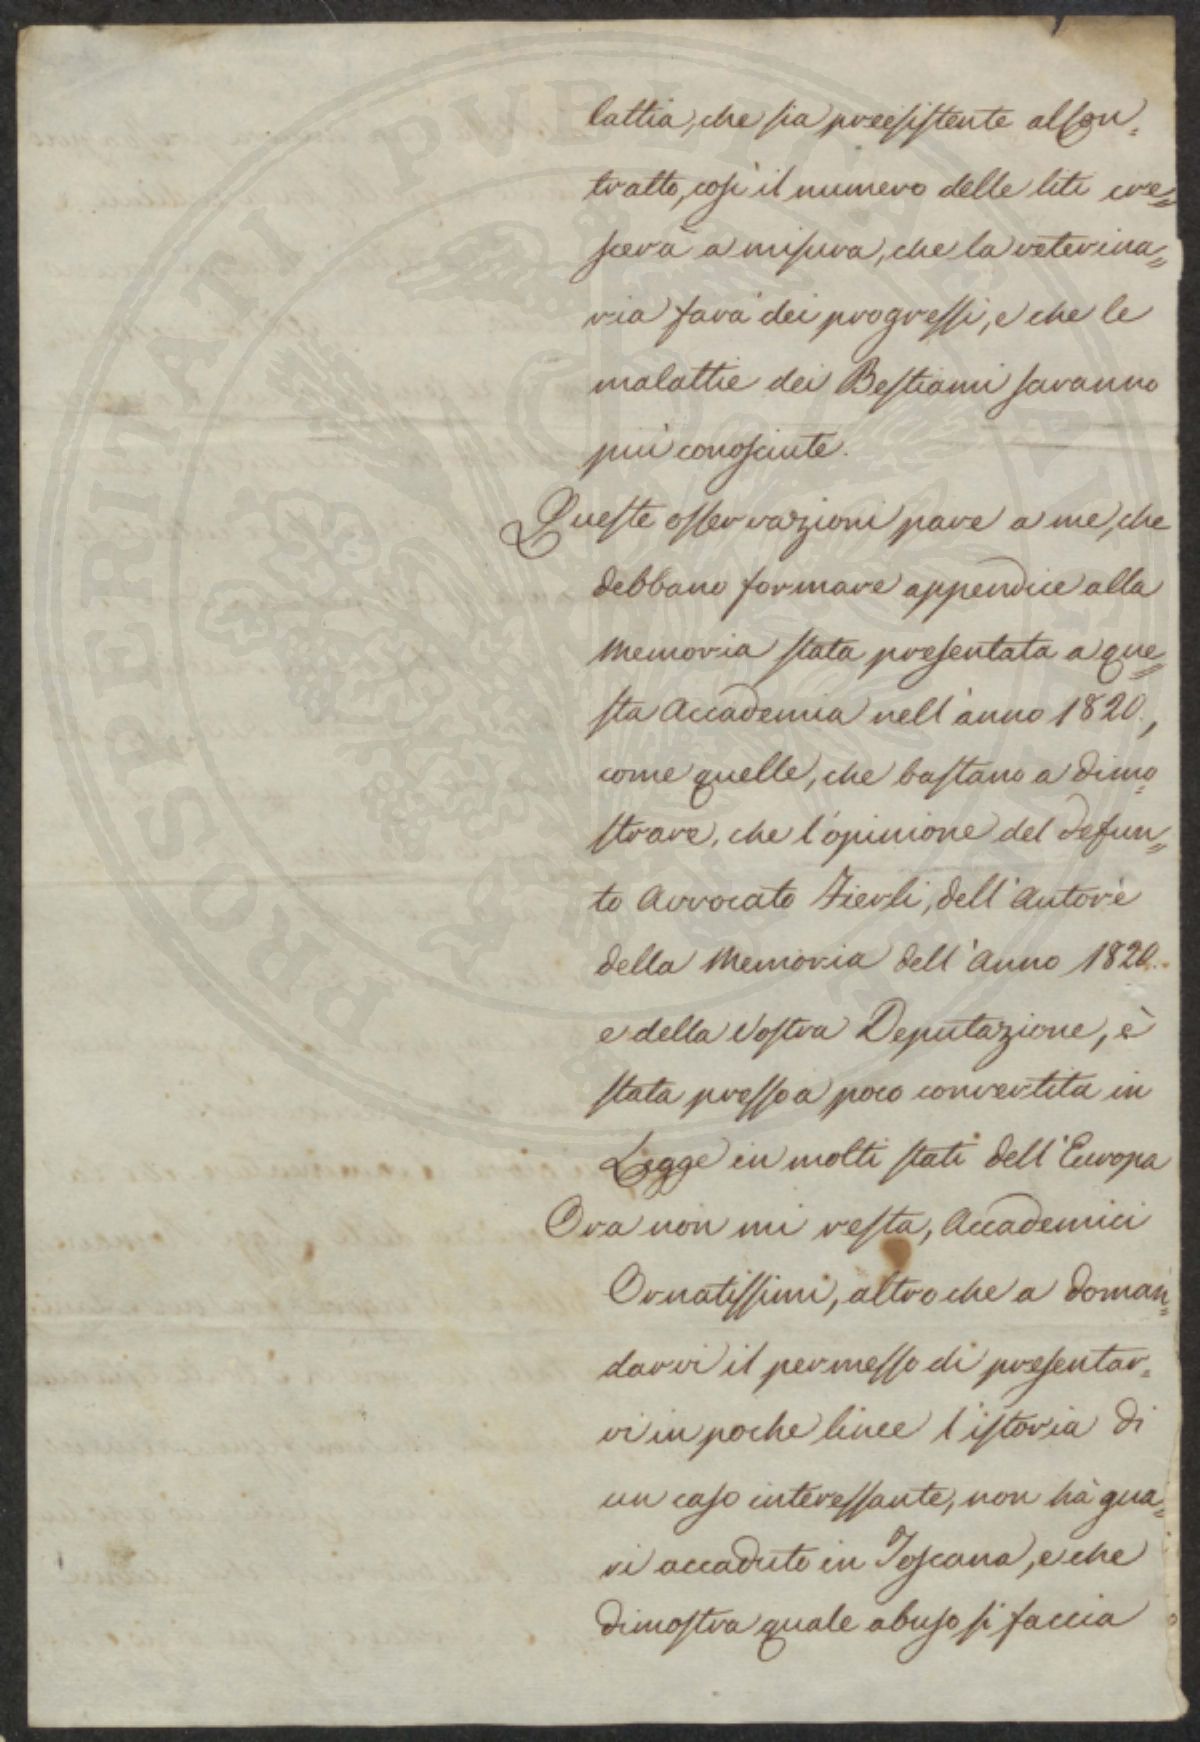 lattia, che sia preesistente al Con-
tratto, così il numero delle liti cre=
scerà a misura, che la veterina=
ria farà dei progressi, e che le
malattie dei Bestiami saranno
più conosciute.
Queste osservazioni pare a me, che
debbano formare appendice alla
Memoria stata presentata a que=
sta Accademia nell'anno 1820.,
come quelle, che bastano a dimo-
strare, che l'opinione del defun=
to Avvocato Fierli, dell'Autore
della Memoria dell'Anno 1820.
e della Vostra Deputazione, è
stata presso a poco convertita in
Legge in molti stati dell'Europa
Ora non mi resta, Accademici
Ornatissimi, altro che a doman=
darvi il permesso di presentar-
vi in poche linee l'istoria di
un caso interessante, non hà gua=
ri accaduto in Toscana, e che
dimostra quale abuso si faccia
PROSPERITATI PVBLICAE AVGENDAE